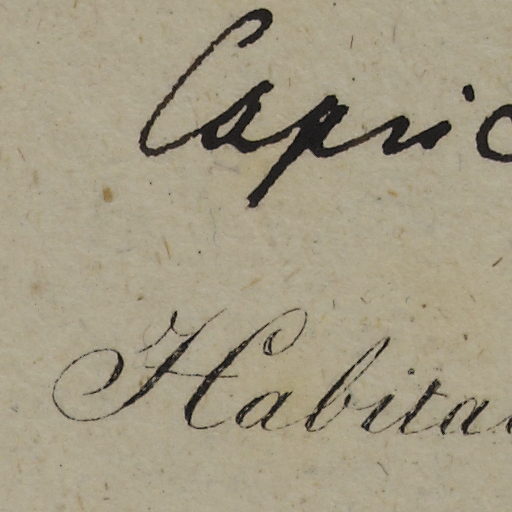 Capric
Habita